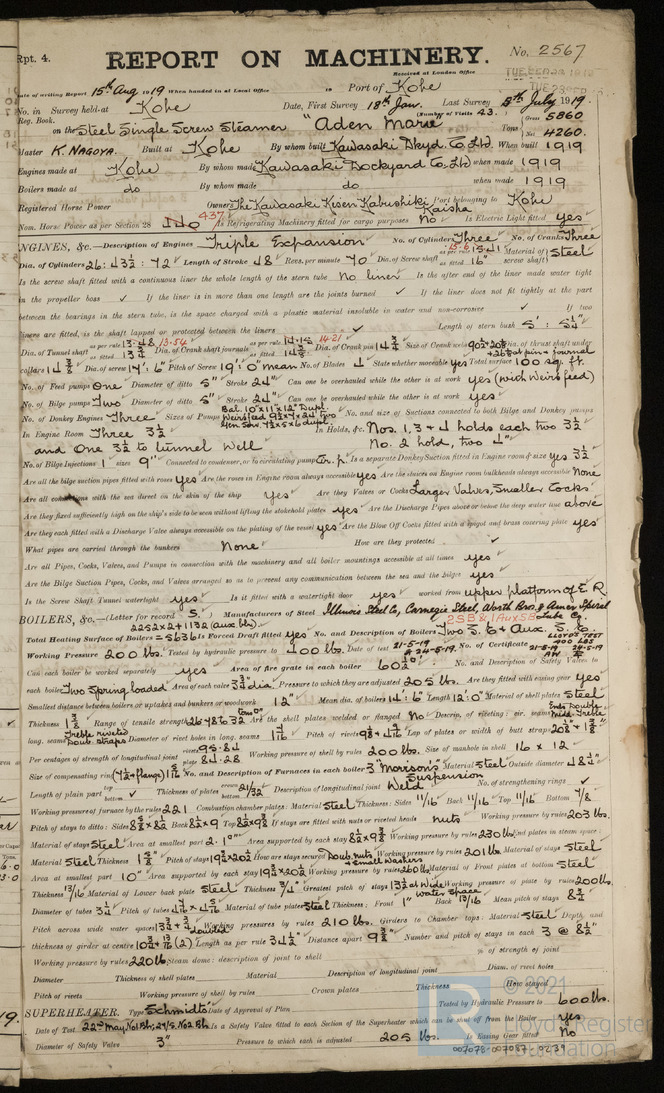 Rpt. 4.
REPORT ON MACHINERY.
No. 2567
Received at London Office
Date of writing Report 15th Aug 1919 When handed in at Local Office Port of Kobe
No. in Survey held at Kobe Date, First Survey 18th Jan. Last Survey 8th July 1919.
Reg. Book. (Number of Visits 43.)
on the Steel Single Screw Steamer "Aden Maru" Tons Gross 5860 Net 4260.
Master K. NAGOYA. Built at Kobe By whom built Kawasaki Dkyd. Co. Ltd. When built 1919
Engines made at Kobe By whom made Kawasaki Dockyard Co. Ltd when made 1919
Boilers made at do By whom made do when made 1919
Registered Horse Power Owners The Kawasaki Kisen Kabushiki Kaisha Port belonging to Kobe
Nom. Horse Power as per Section 28 440 437 Is Refrigerating Machinery fitted for cargo purposes No Is Electric Light fitted yes
ENGINES, &c.—Description of Engines Triple Expansion No. of Cylinders Three No. of Cranks Three
Dia. of Cylinders 26: 43½: 72 Length of Stroke 48 Revs. per minute 70 Dia. of Screw shaft as per rule 13.41 as fitted 16" Material of screw shaft Steel
Is the screw shaft fitted with a continuous liner the whole length of the stern tube No liner Is the after end of the liner made water tight
in the propeller boss ✓ If the liner is in more than one length are the joints burned ✓ If the liner does not fit tightly at the part
between the bearings in the stern tube, is the space charged with a plastic material insoluble in water and non-corrosive ✓ If two
liners are fitted, is the shaft lapped or protected between the liners ✓ Length of stern bush 5': 5¼"
Dia. of Tunnel shaft as per rule 13.48 13.54 as fitted 13¾ Dia. of Crank shaft journals as per rule 14.15 14.21 as fitted 14¾ Dia. of Crank pin 14¾ Size of Crank webs Dia. of thrust shaft under
collars 14¾ Dia. of screw 17': 6" Pitch of Screw 19': 0" mean No. of Blades 4 State whether moveable yes Total surface 100 sq. ft.
No. of Feed pumps One Diameter of ditto 5" Stroke 24" Can one be overhauled while the other is at work yes (with Weirs feed)
No. of Bilge pumps Two Diameter of ditto 5" Stroke 24" Can one be overhauled while the other is at work yes
No. of Donkey Engines Three Sizes of Pumps Bal. 10"x11"x12" Dupl. No. and size of Suctions connected to both Bilge and Donkey pumps
In Engine Room Three 3½ In Holds, &c. Nos. 1, 3 & 4 holds each two 3½
and One 3½ to tunnel well No. 2 hold, two 4"
No. of Bilge Injections 1 sizes 9" Connected to condenser, or to circulating pump Cr. p. Is a separate Donkey Suction fitted in Engine room & size yes 3½
Are all the bilge suction pipes fitted with roses yes Are the roses in Engine room always accessible yes Are the sluices on Engine room bulkheads always accessible None
Are all connections with the sea direct on the skin of the ship yes Are they Valves or Cocks Larger Valves, Smaller Cocks
Are they fixed sufficiently high on the ship's side to be seen without lifting the stokehold plates yes Are the Discharge Pipes above or below the deep water line above
Are they each fitted with a Discharge Valve always accessible on the plating of the vessel yes Are the Blow Off Cocks fitted with a spigot and brass covering plate yes
What pipes are carried through the bunkers None How are they protected ✓
Are all Pipes, Cocks, Valves, and Pumps in connection with the machinery and all boiler mountings accessible at all times yes
Are the Bilge Suction Pipes, Cocks, and Valves arranged so as to prevent any communication between the sea and the bilges yes
Is the Screw Shaft Tunnel watertight yes Is it fitted with a watertight door yes worked from upper platform of E. R
BOILERS, &c.—(Letter for record S.) Manufacturers of Steel Illinois Steel Co, Carnegie Steel, Worth Bros. & Amer. Spiral Tube Co.
2252 x 2 + 1132 (aux blr). 2SB & 1 Aux SB
Total Heating Surface of Boilers = 5636 Is Forced Draft fitted yes No. and Description of Boilers Two S. E & Aux. S. E. LLOYD'S TEST 400 LBS
Working Pressure 200 lbs. Tested by hydraulic pressure to 400 lbs. Date of test 21-5-19 & 24-5-19. No. of Certificate 21-5-19 24-5-19
Can each boiler be worked separately yes Area of fire grate in each boiler 60½ No. and Description of Safety Valves to
each boiler Two Spring loaded Area of each valve 3¾ dia. Pressure to which they are adjusted 205 lbs. Are they fitted with easing gear yes
Smallest distance between boilers or uptakes and bunkers or woodwork 12" Mean dia. of boilers 14': 6" Length 12': 0" Material of shell plates Steel
Thickness 1⅜ Range of tensile strength 26.48 to 32 tons Are the shell plates welded or flanged No Descrip. of riveting: cir. seams Ends Double Midd. Treble
long. seams Treble riveted Doub. straps Diameter of rivet holes in long. seams 1 7/16 Pitch of rivets Lap of plates or width of butt straps
Per centages of strength of longitudinal joint rivets 95.84 plate 84.28 Working pressure of shell by rules 200 lbs. Size of manhole in shell 16 x 12
Size of compensating ring No. and Description of Furnaces in each boiler 3 "Morison's" Suspension Material Steel Outside diameter 48¼"
Length of plain part top bottom ✓ Thickness of plates crown bottom 21/32 Description of longitudinal joint Weld No. of strengthening rings ✓
Working pressure of furnace by the rules 221 Combustion chamber plates: Material Steel Thickness: Sides 11/16 Back 11/16 Top 11/16 Bottom 7/8
Pitch of stays to ditto: Sides 8½ x 8½ Back 8½ x 9 Top 8½ x 9¾ If stays are fitted with nuts or riveted heads nuts Working pressure by rules 203 lbs.
Material of stays Steel Area at smallest part 2.1" Area supported by each stay 8½ x 9¾ Working pressure by rules 230 lbs. End plates in steam space:
Material Steel Thickness Pitch of stays 19½ x 20½ How are stays secured Doub. nuts & small washers Working pressure by rules 201 lbs Material of stays Steel
Area at smallest part 10" Area supported by each stay 19½ x 20½ Working pressure by rules 260 lbs Material of Front plates at bottom Steel
Thickness 13/16 Material of Lower back plate Steel Thickness 3/4" Greatest pitch of stays 13¾ at wide water space Working pressure of plate by rules 200 lbs.
Diameter of tubes 3¼ Pitch of tubes Material of tube plates Steel Thickness: Front 1" Back 13/16 Mean pitch of stays
Pitch across wide water spaces doubled Working pressures by rules 210 lbs. Girders to Chamber tops: Material Steel Depth and
thickness of girder at centre (2) Length as per rule 34½ Distance apart 9¾ Number and pitch of stays in each 3 @ 8½"
Working pressure by rules 220 lb Steam dome: description of joint to shell % of strength of joint
Diameter Thickness of shell plates Material Description of longitudinal joint Diam. of rivet holes
Pitch of rivets Working pressure of shell by rules Crown plates Thickness How stayed
SUPERHEATER. Type "Schmidts" Date of Approval of Plan Tested by Hydraulic Pressure to 600 lb.
Date of Test 22nd May, No1 Blr; 24/5, No2 Blr Is a Safety Valve fitted to each Section of the Superheater which can be shut off from the Boiler Yes
Diameter of Safety Valve 3" Pressure to which each is adjusted 205 lbs. Is Easing Gear fitted No
© 2021
Lloyd's Register
Foundation
007078-007087-0239